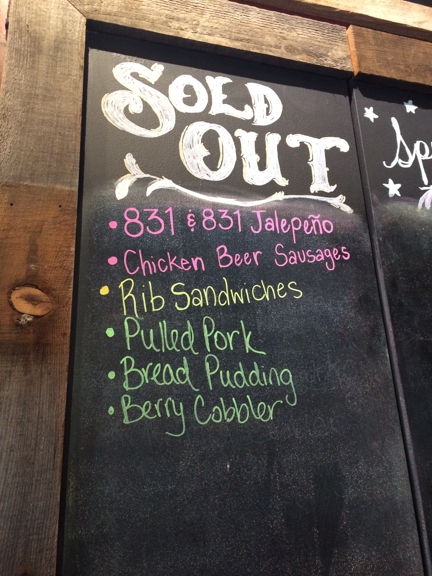 SOLD
OUT
• 831 & 831 Jalepeño
• Chicken Beer Sausages
• Rib Sandwiches
• Pulled Pork
• Bread Pudding
• Berry Cobbler